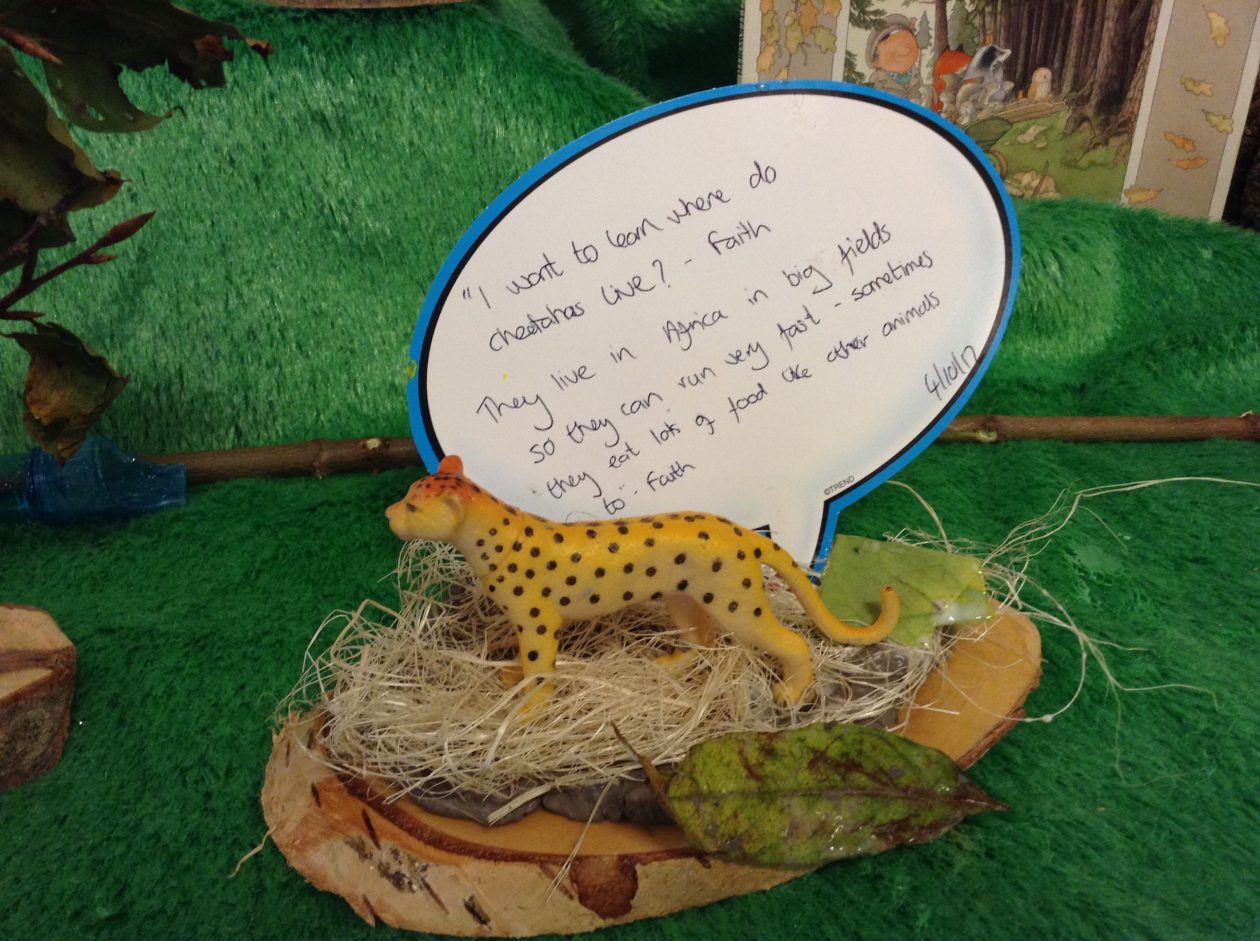 "I want to learn where do
cheetahas live? - Faith
They live in Africa in big fields
so they can run very fast - sometimes
they eat lots of food like other animals
to - Faith
4/10/17
©TREND